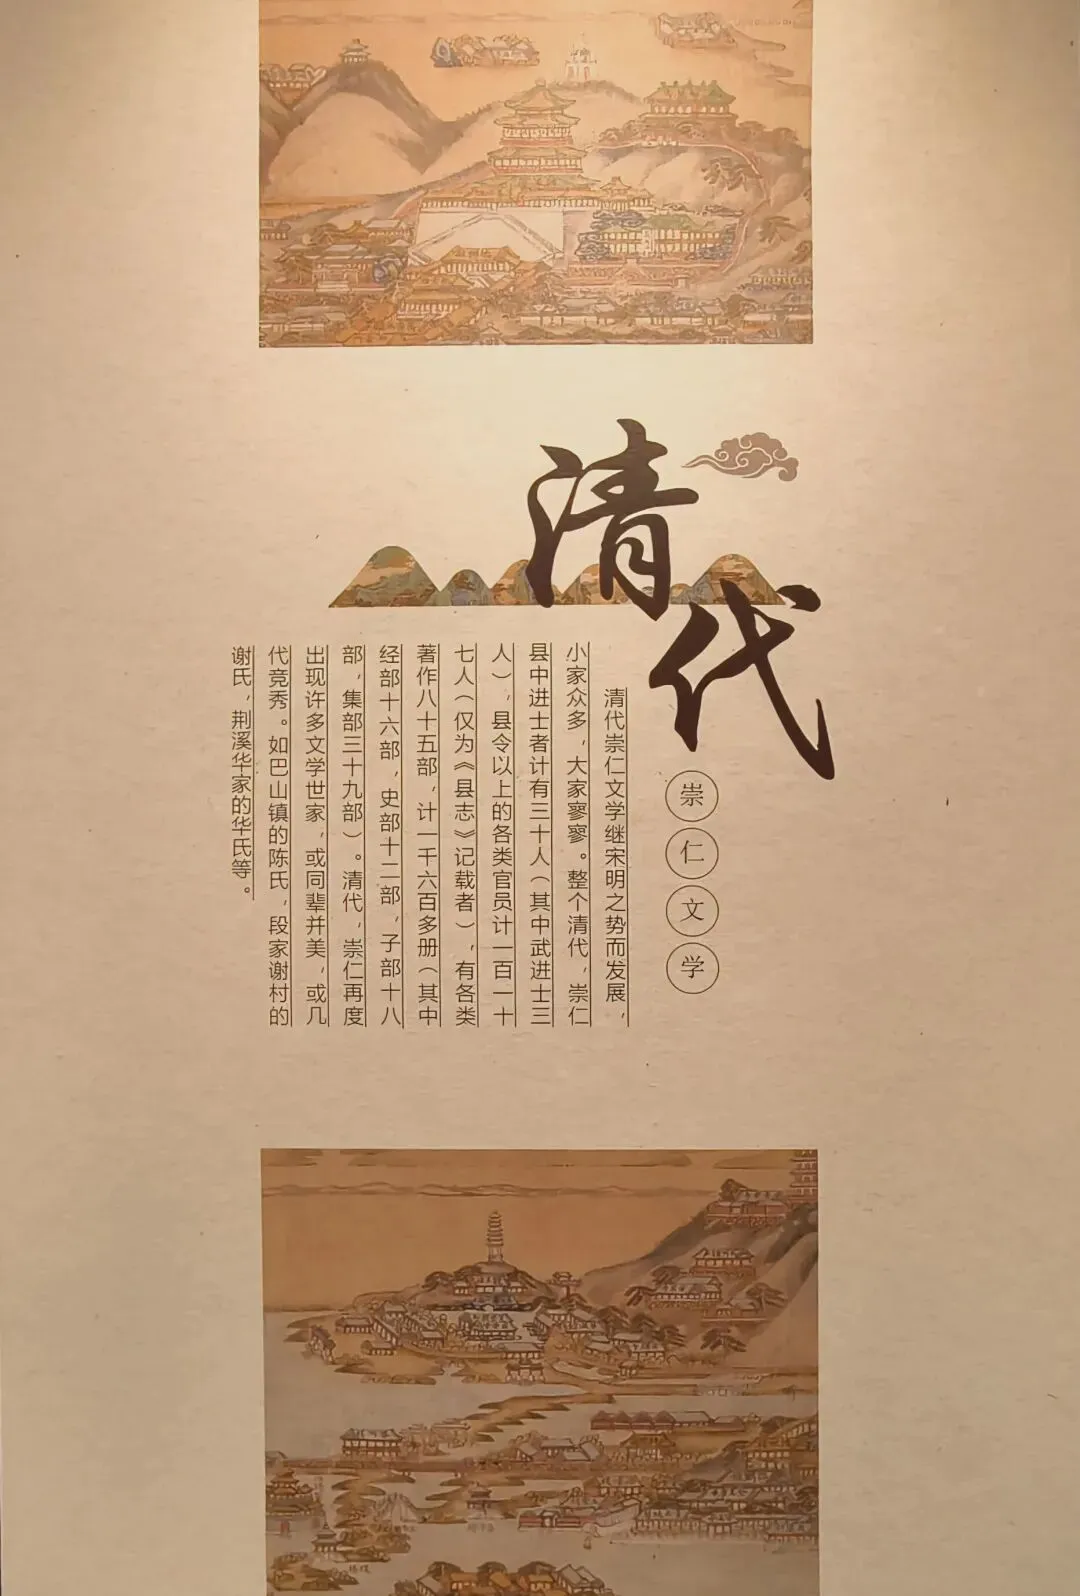 清代
崇仁文学
清代崇仁文学继宋明之势而发展，
小家众多，大家寥寥。整个清代，崇仁
县中进士者计有三十人（其中武进士三
人），县令以上的各类官员计一百一十
七人（仅为《县志》记载者），有各类
著作八十五部，计一千六百多册（其中
经部十六部，史部十二部，子部十八
部，集部三十九部）。清代，崇仁再度
出现许多文学世家，或同辈并美，或几
代竞秀。如巴山镇的陈氏，段家谢村的
谢氏，荆溪华家的华氏等。